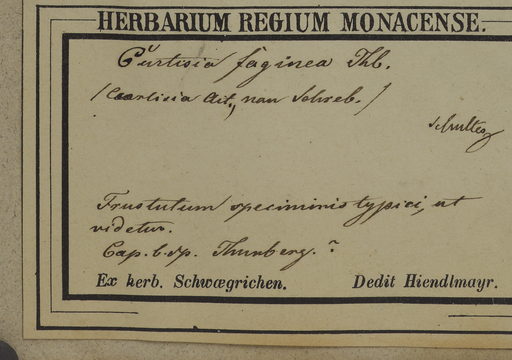 HERBARIUM REGIUM MONACENSE.
Curtisia faginea Thb.
(Curtisia Ait., non Schreb.)
Schultes
Frustulum speciminis typici, ut
videtur.
Cap. b. sp. Thunberg.?
Ex herb. Schwægrichen. Dedit Hiendlmayr.